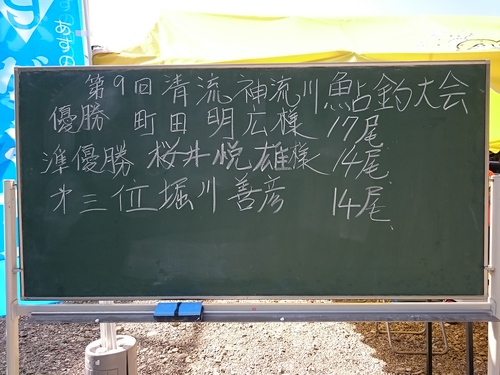 第9回清流神流川鮎釣大会
優勝 町田 明広様 17尾
準優勝 桜井悦雄様 14尾
オ三位堀川善彦 14尾